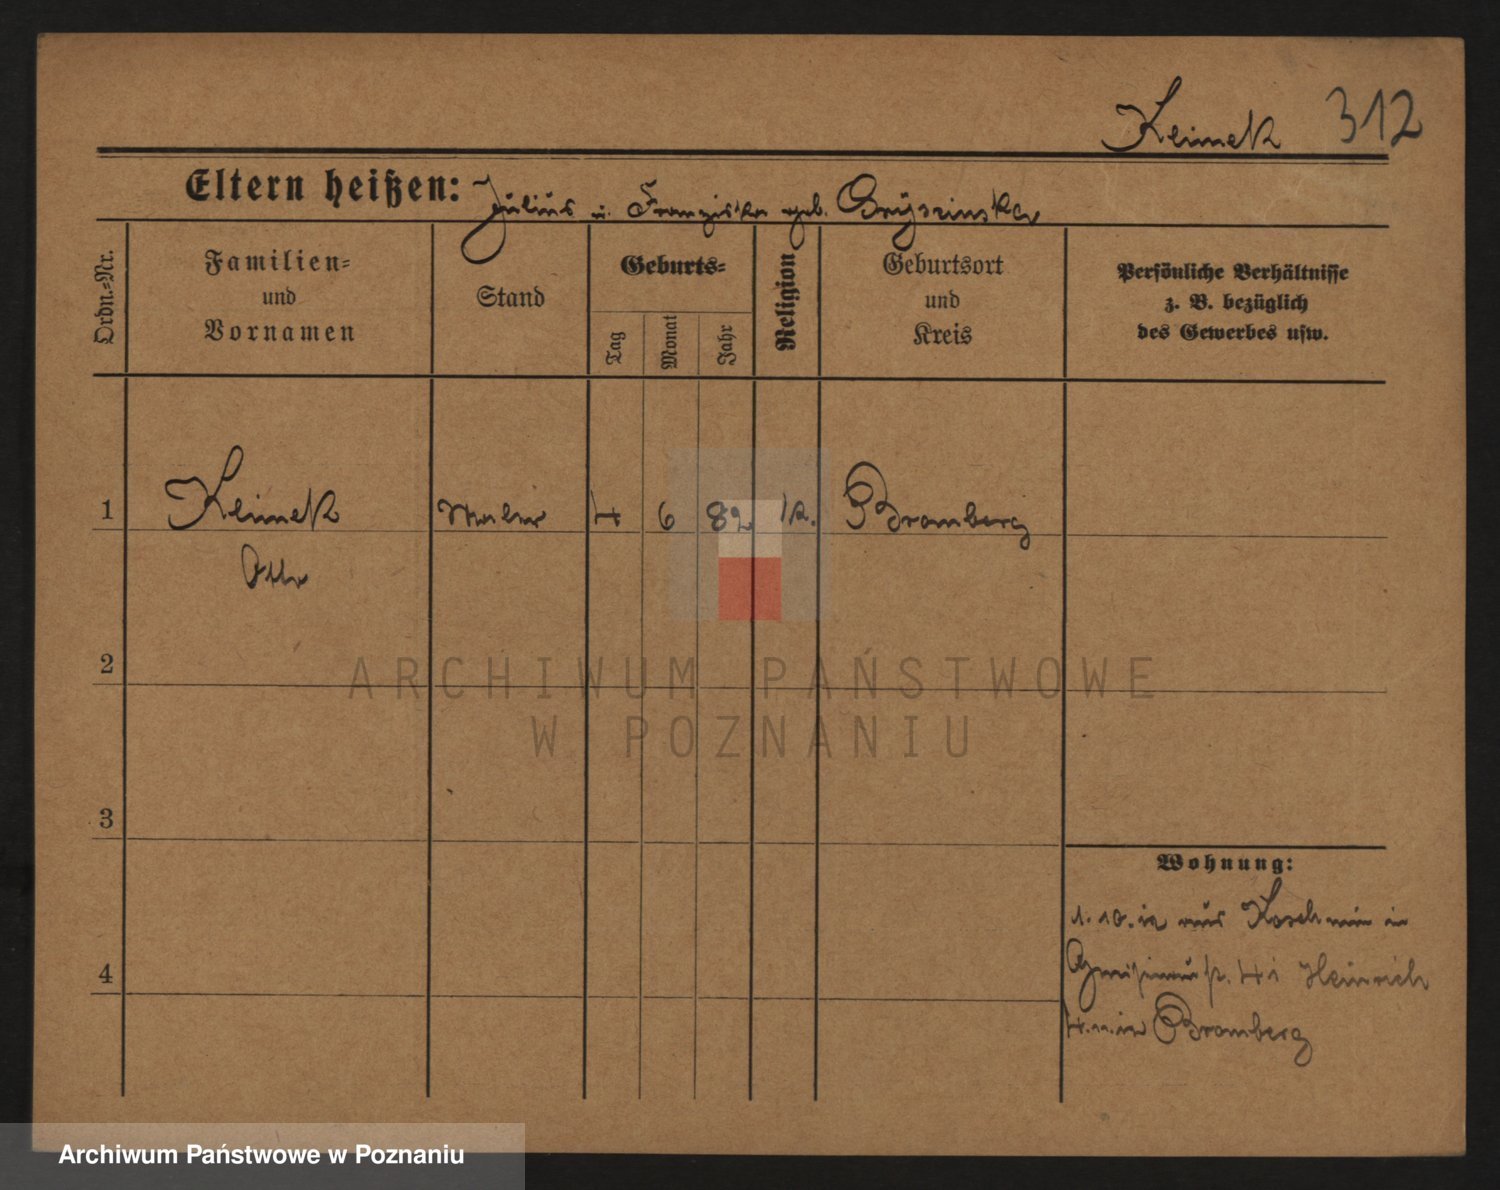 Keimek 312
Eltern heißen: Julius u. Franziska geb.
Ordn.-Nr.
Familien-
und
Vornamen
Stand
Geburts-
Tag
Monat
Jahr
Religion
Geburtsort
und
Kreis
Persönliche Verhältnisse
z. B. bezüglich
des Gewerbes usw.
1 Keimek Maler 4 6 82 k. Bromberg
Otto
2
3
4
Wohnung:
1. 10. 12 aus Koschmin in
Gneisenaustr. 4 i Heinrich
4. 11. in Bromberg
ARCHIWUM PAŃSTWOWE
W POZNANIU
Archiwum Państwowe w Poznaniu